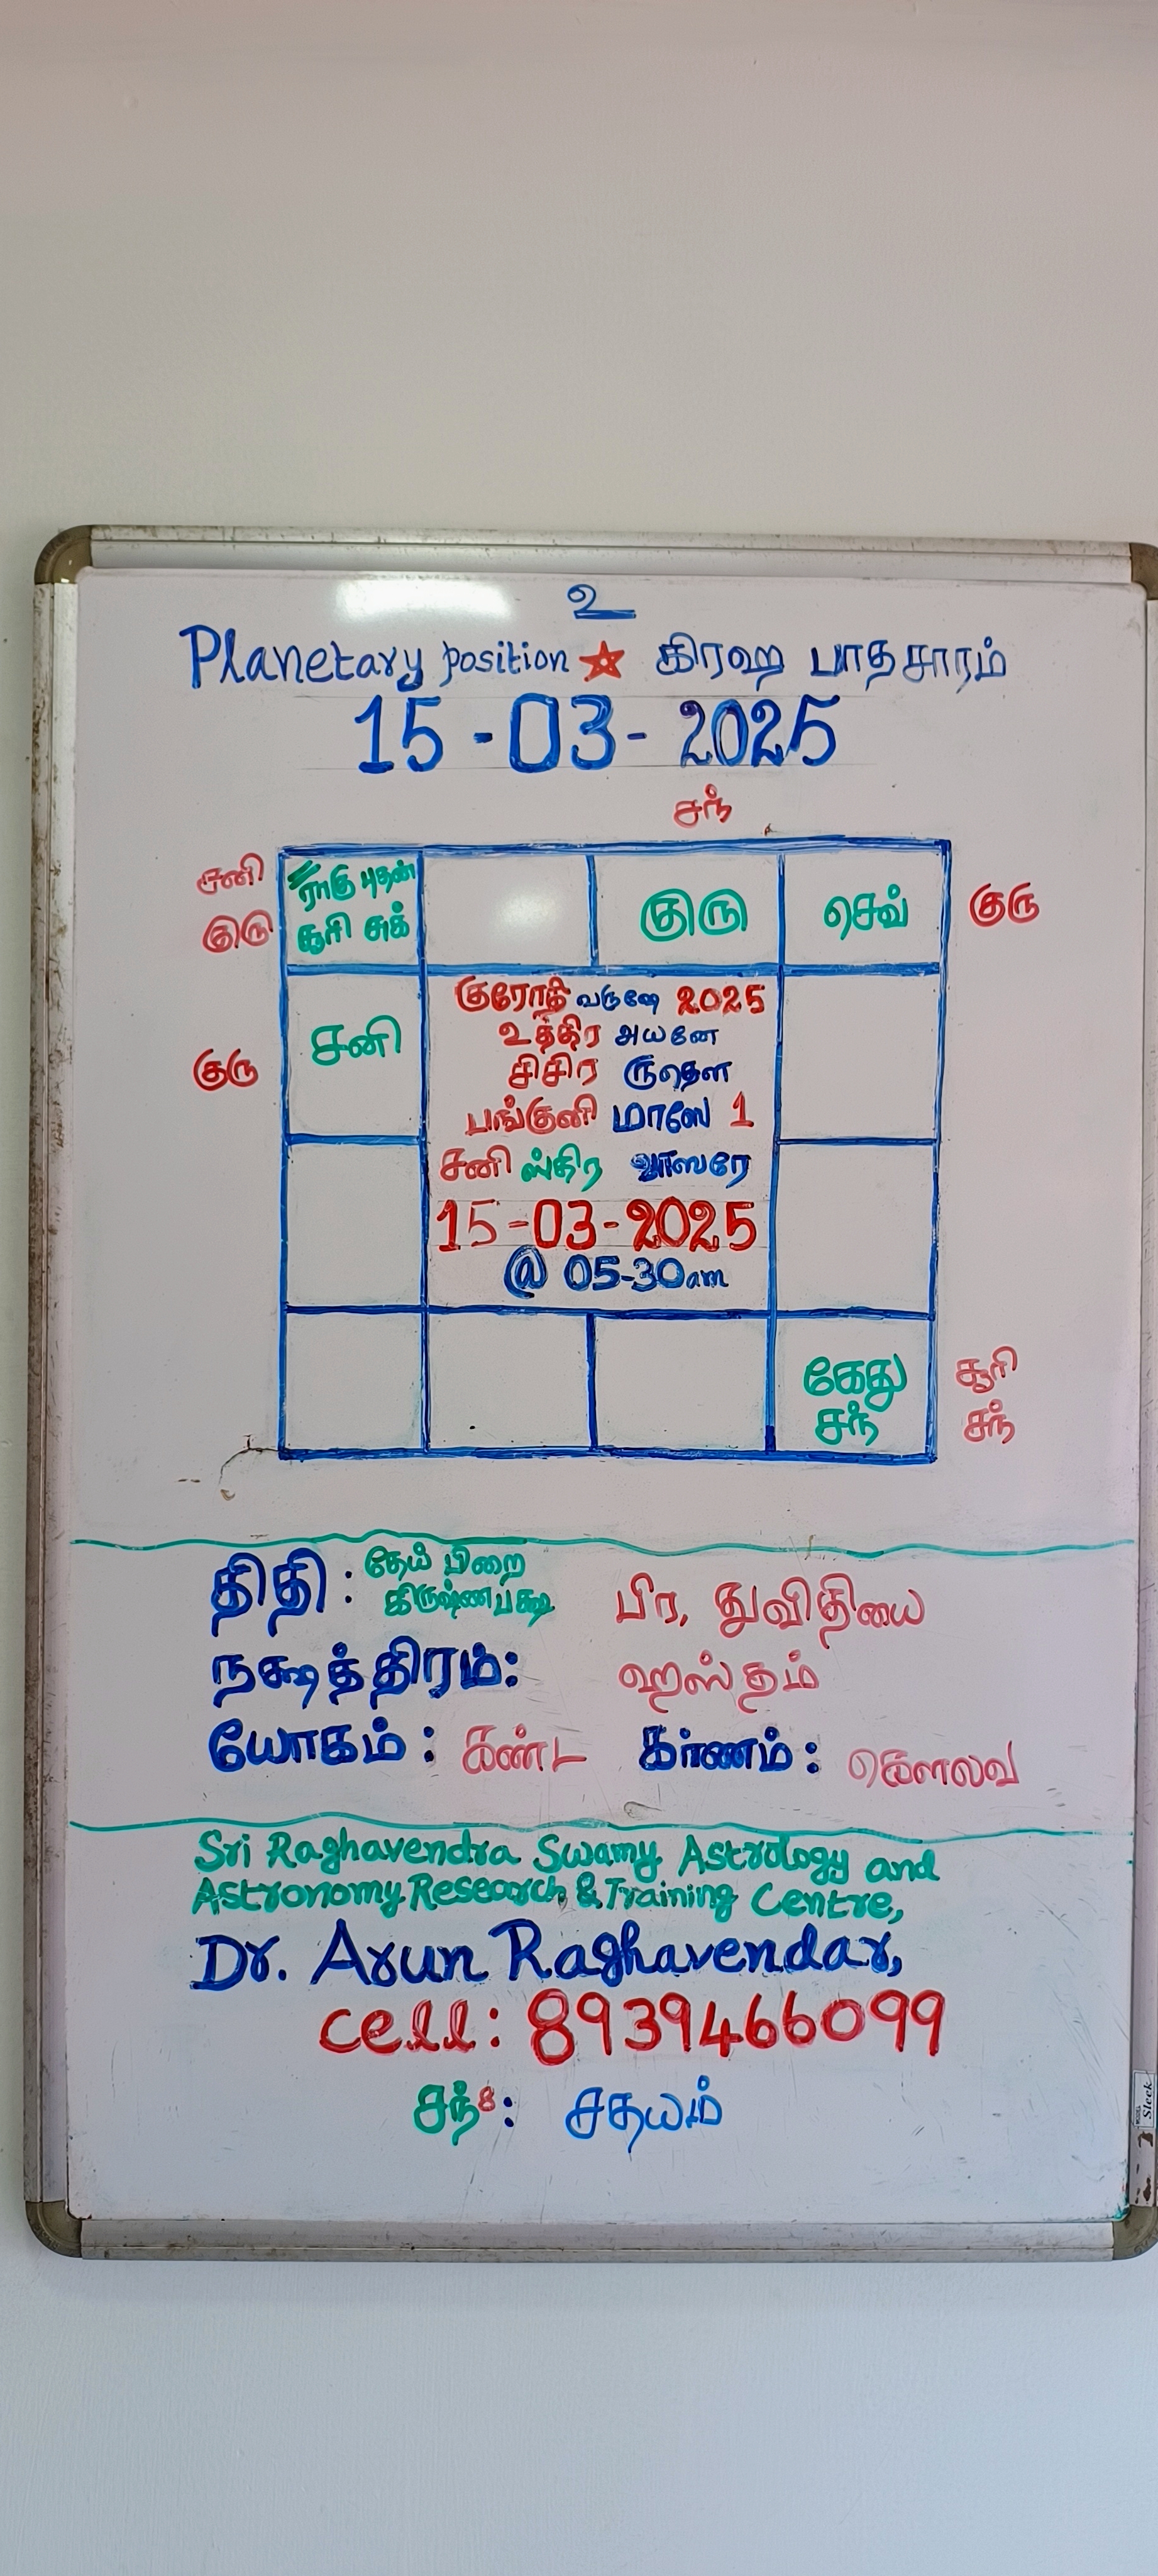 உ
Planetary position கிரஹ பாதசாரம்
15-03-2025
சந்
சனி
குரு
ராகு புதன்
சூரி சுக்
குரு
செவ்
குரு
குரு
சனி
குரோதி வருஷே 2025
உத்திர அயனே
சிசிர ருதௌ
பங்குனி மாஸே 1
சனி ஸ்திர வாஸரே
15-03-2025
@ 05-30am
கேது
சந்
சூரி
சந்
திதி : தேய் பிறை
கிருஷ்ணபக்ஷ பிர, துவிதியை
நக்ஷத்திரம்: ஹஸ்தம்
யோகம் : கண்ட கர்ணம் : கௌலவ
Sri Raghavendra Swamy Astrology and
Astronomy Research & Training Centre,
Dr. Arun Raghavendar,
cell: 8939466099
சந்8: சதயம்
Sleek